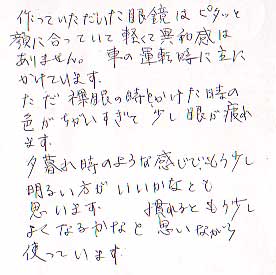 作っていただいた眼鏡は ピタッと
顔に合っていて 軽くて異和感は
ありません。 車の運転時に主に
かけています。
ただ 裸眼の時とかけた時の
色がちがいすぎて 少し眼が疲れ
ます。
夕暮れ時のような感じで、もう少し
明るい方がいいかなとも
思います。 慣れると もう少し
よくなるかなと 思いながら
使っています。